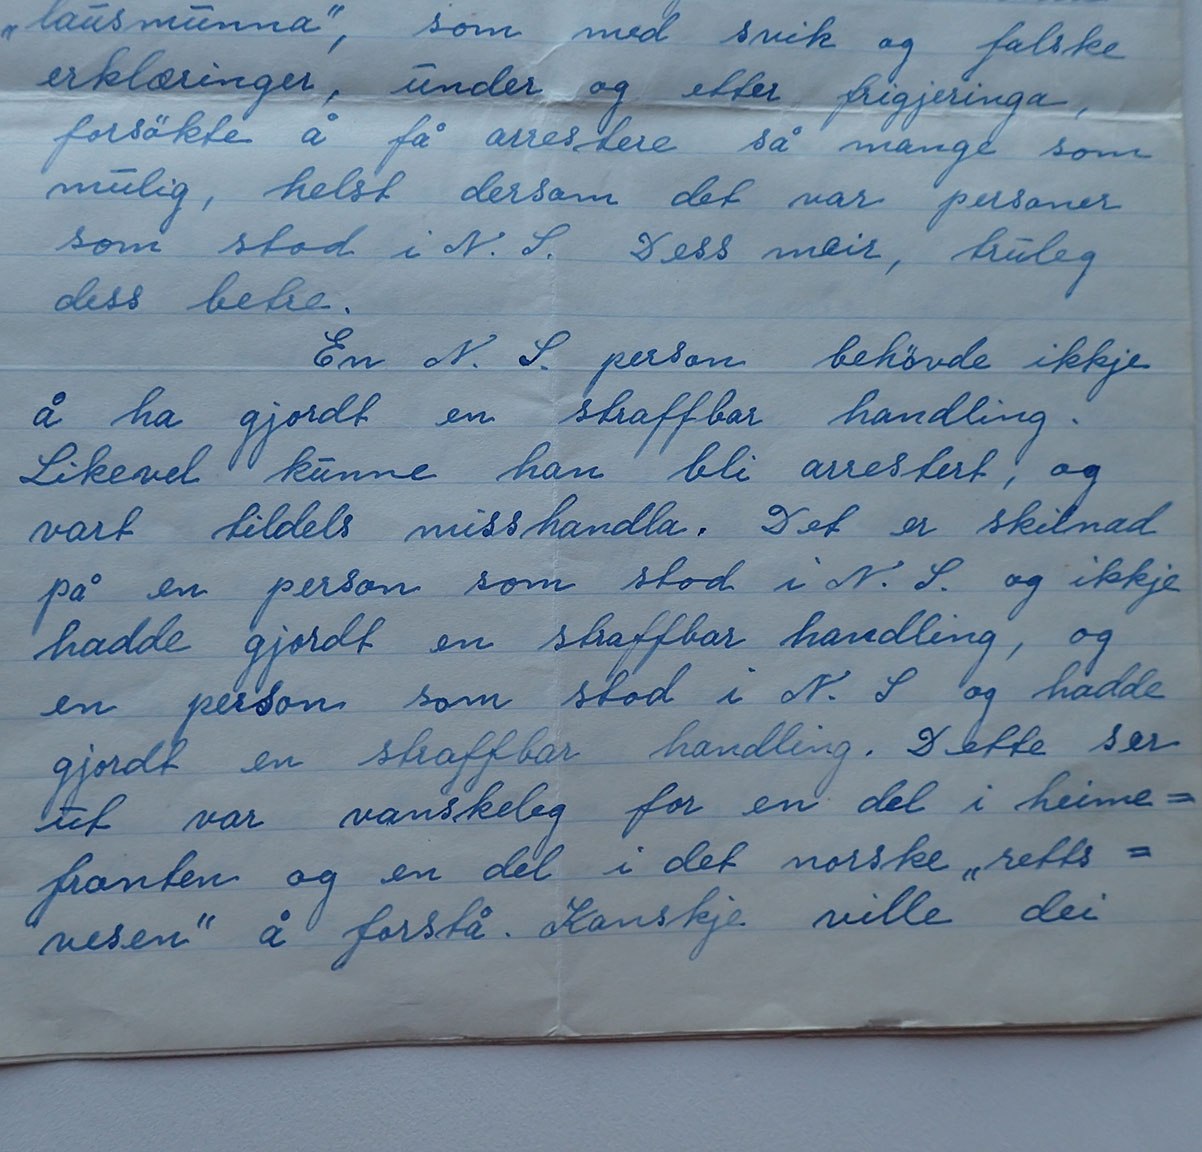 „lausmunna", som med svik og falske
erklæringer, under og etter frigjeringa,
forsökte å få arrestere så mange som
mulig, helst dersom det var personer
som stod i N. S. Dess meir, truleg
dess betre.
En N. S. person behövde ikkje
å ha gjordt en straffbar handling.
Likevel kunne han bli arrestert, og
vart tildels misshandla. Det er skilnad
på en person som stod i N. S. og ikkje
hadde gjordt en straffbar handling, og
en person som stod i N. S og hadde
gjordt en straffbar handling. Dette ser
ut var vanskeleg for en del i heime=
fronten og en del i det norske „retts=
vesen" å forstå. Kanskje ville dei